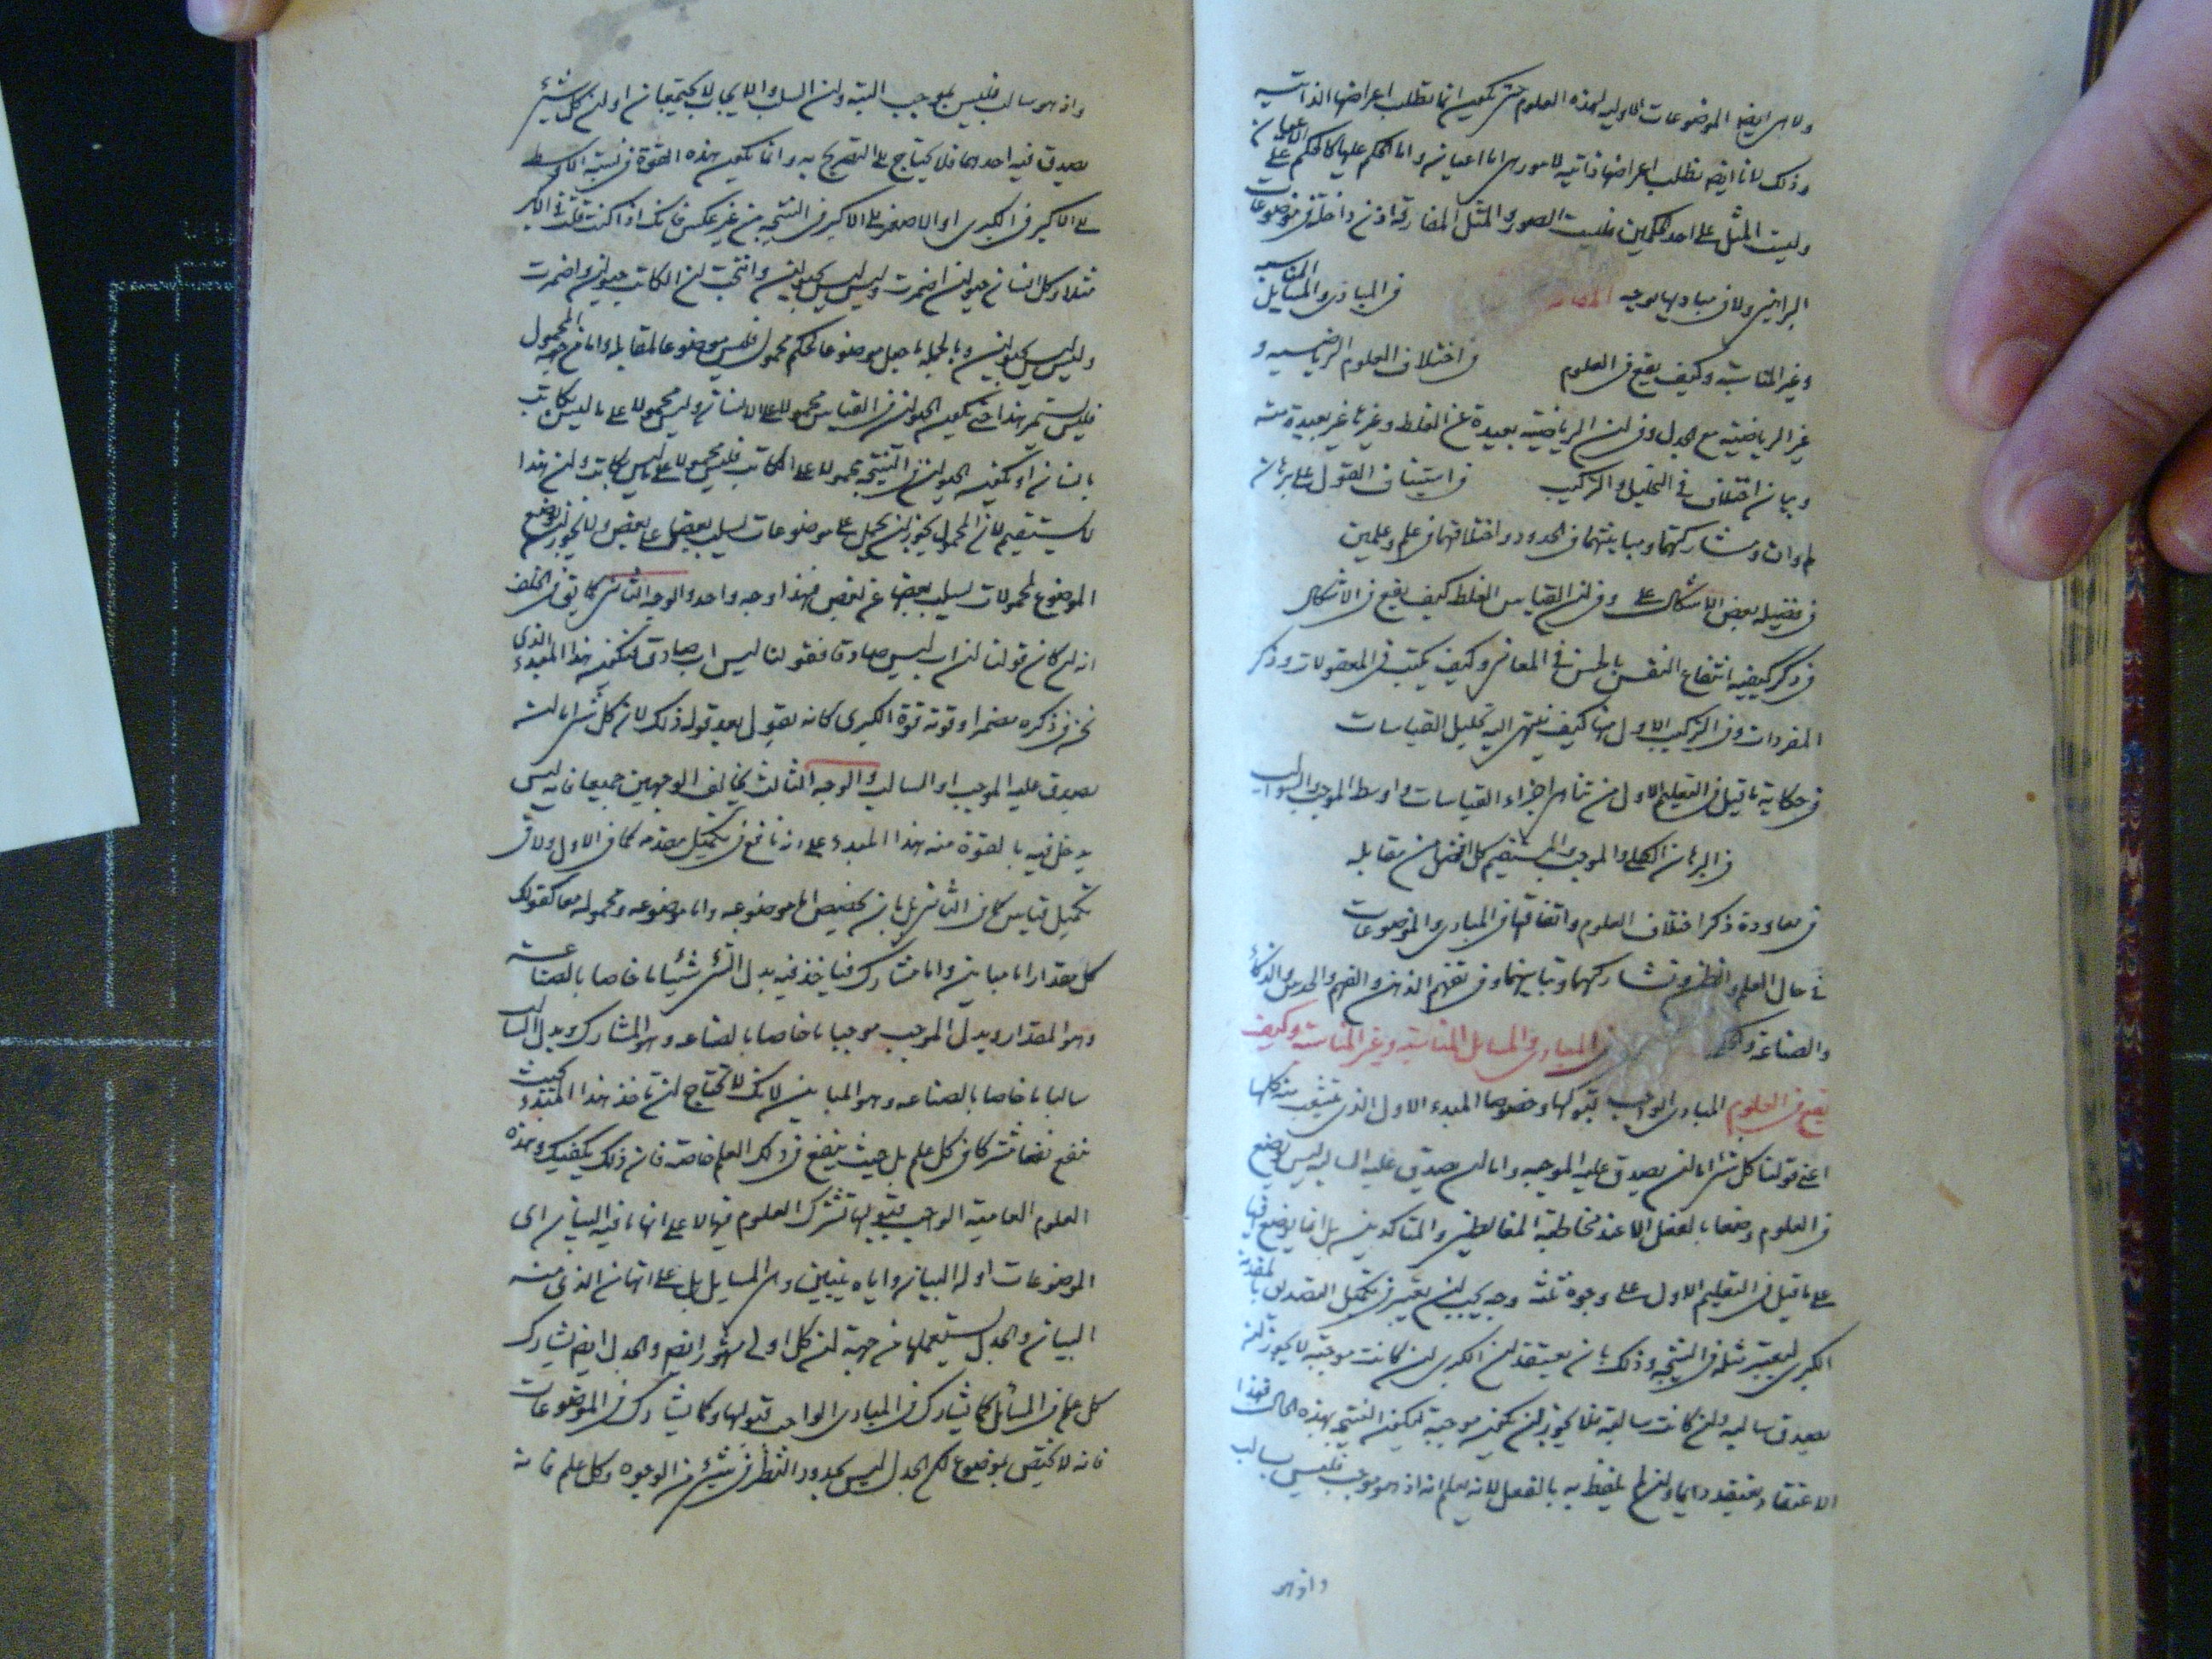 ولا هى ايضا الموضوعات الاوليه لهذه العلوم حتى تكون انما تطلب اعراضها الذاتيه
وذلك لانا ايضا نطلب اعراضها ذاتيه لامور هى اما اعيان واما الحكم عليها كالحكم على الاعيان
وليست المثل على احد الحكمين فليست الصور والمثل المفارقه اذن داخله فى موضوعات
البراهين ولا فى مباديها بوجه فى المبادى والمسايل المناسبه
وغير المناسبه وكيف يقع فى العلوم فى اختلاف العلوم الرياضيه و
غير الرياضيه مع الجدل وفى ان الرياضيه بعيدة عن الغلط وغيرها غير بعيدة منه
وبيان اختلاف فى التحليل والتركيب فى استيناف القول على برهان
لم وان ومشاركتهما ومباينتهما فى الحدود واختلافهما فى علم وعلمين
فى تفضيل بعض الاشكال على وفى ان القياس الغلط كيف يقع فى الاشكال
فى ذكر كيفيه انتفاع النفس بالحس فى المعانى وكيف يكتسب فى المعقولات وذكر
المفردات وفى التركيب الاول منها كيف ينتهى اليه تحليل القياسات
فى حكاية ما قيل فى التعليم الاول من تناهى اجزاء القياسات واوسط الموجب والسوالب
فى البرهان الكلى والموجب والمستقيم كل افضل من مقابله
فى معاودة ذكر اختلاف العلوم واتفاقها فى المبادى والموضوعات
فى حال العلم والظن وتشاركهما وتباينهما وفى تفهم الذهن والفهم والحدس والذكاء
والصناعة والحكمه فى المبادى والمسايل المناسبه وغير المناسبه وكيف
تقع فى العلوم المبادى الواجب قبولها وخصوصا المبدء الاول الذى يتشعب منه كلها
اعنى قولنا كل شى اما ان يصدق عليه الموجبه واما ان يصدق عليه السالبه ليس يوضع
فى العلوم وضعا بالفعل الا عند مخاطبة المغالطين والمناكدين بل انما يوضع فيها
على ما قيل فى التعليم الاول على وجوه ثلثه وجه يجب ان يعتبر فى تكميل التصديق بالمقدمة
الكبرى ليعتبر مثله فى النتيجه وذلك بان يعتقد ان الكبرى ان كانت موجبه لا يجوز ان
يصدق سالبه وان كانت سالبة فلا يجوز ان تكون موجبة لتكون النتيجه بهذه الحال فهذا
الاعتقاد يعتقد دايما وان لم يلفظ به بالفعل لانه يعلم انه اذ هو موجب فليس بسالب
واذ هو
واذ هو سالب فليس بموجب البته وان السلب والايجاب لا يجتمعان او ان كل شئ
يصدق فيه احدهما فلا يحتاج الى التصريح به وانما يكون بهذه القوة فى نسبة الاوسط
الى الاكبر فى الكبرى او الاصغر الى الاكبر فى النتيجه من غير عكس فانك اذا كنت قلت فى الاكبر
مثلا وكل انسان حيوان اضمرت وليس ليس بحيوان وانتجت ان الكاتب حيوان واضمرت
وليس ليس بحيوان وبالجمله ما جعل موضوعا لحكم محمول فليس موضوعا لمقابله واما من جهه المحمول
فليس يستمر هذا حتى يكون الحيوان فى القياس محمولا على الانسان وليس محمولا على ما ليس
بانسان او يكون الحيوان فى النتيجه محمولا على الكاتب فليس محمولا على ما ليس بكاتب وان هذا
لا يستقيم لان المحمول يجوز ان يحمل على موضوعات يسلب بعضها عن بعض ولا يجوز ان يوضع
الموضوع لمحمولات يسلب بعضها عن بعض فهذا وجه واحد والوجه الثانى كما يقع فى الخلف
انه ان كان قولنا ان اب ليس صادقا فقولنا ليس اب صادق فتكون هذا المبدء الذى
نحن فى ذكره مضمرا وقوته قوة الكبرى كانه يقول بعد قوله ذلك لان كل شى اما ان
يصدق عليه الموجب او السالب والوجه الثالث يخالف الوجهين جميعا فانه ليس
يدخل فيه بالقوة منه هذا المبدء على انه نافع فى تكميل مقدمه كما فى الاول ولا فى
تكميل قياس كما فى الثانى بل بان يخصص اما موضوعه واما موضوعه ومحموله معا كقولك
كل مقدار اما مباين واما مشارك فياخذ فيه بدل الشى شيئا ما خاصا بالصناعة
وهو المقدار وبدل الموجب موجبا ما خاصا بالصناعه وهو المشارك وبدل السالب
سالبا ما خاصا بالصناعه وهو المباين لانك لا تحتاج ان تاخذ هذا المبدء بحيث
ينفع نفعا مشتركا فى كل علم بل حيث ينفع فى ذلك العلم خاصه فان ذلك يكفيك وهذه
العلوم العاميه الواجب قبولها تشترك العلوم فيها لا على انها ما فيه البيان اى
الموضوعات او له البيان واياه يتبين وهى المسايل بل على انها من الذى منه
البيان والجدل يستعملها من جهة ان كل اولى مشهور ايضا والجدل ايضا يشارك
كل علم فى المسائل كما يشارك فى المبادى الواجب قبولها وكما يشارك فى الموضوعات
فانه لا يختص بموضوع لكن الجدل ليس محدود النظر فى شئ من الوجوه وكل علم فانه